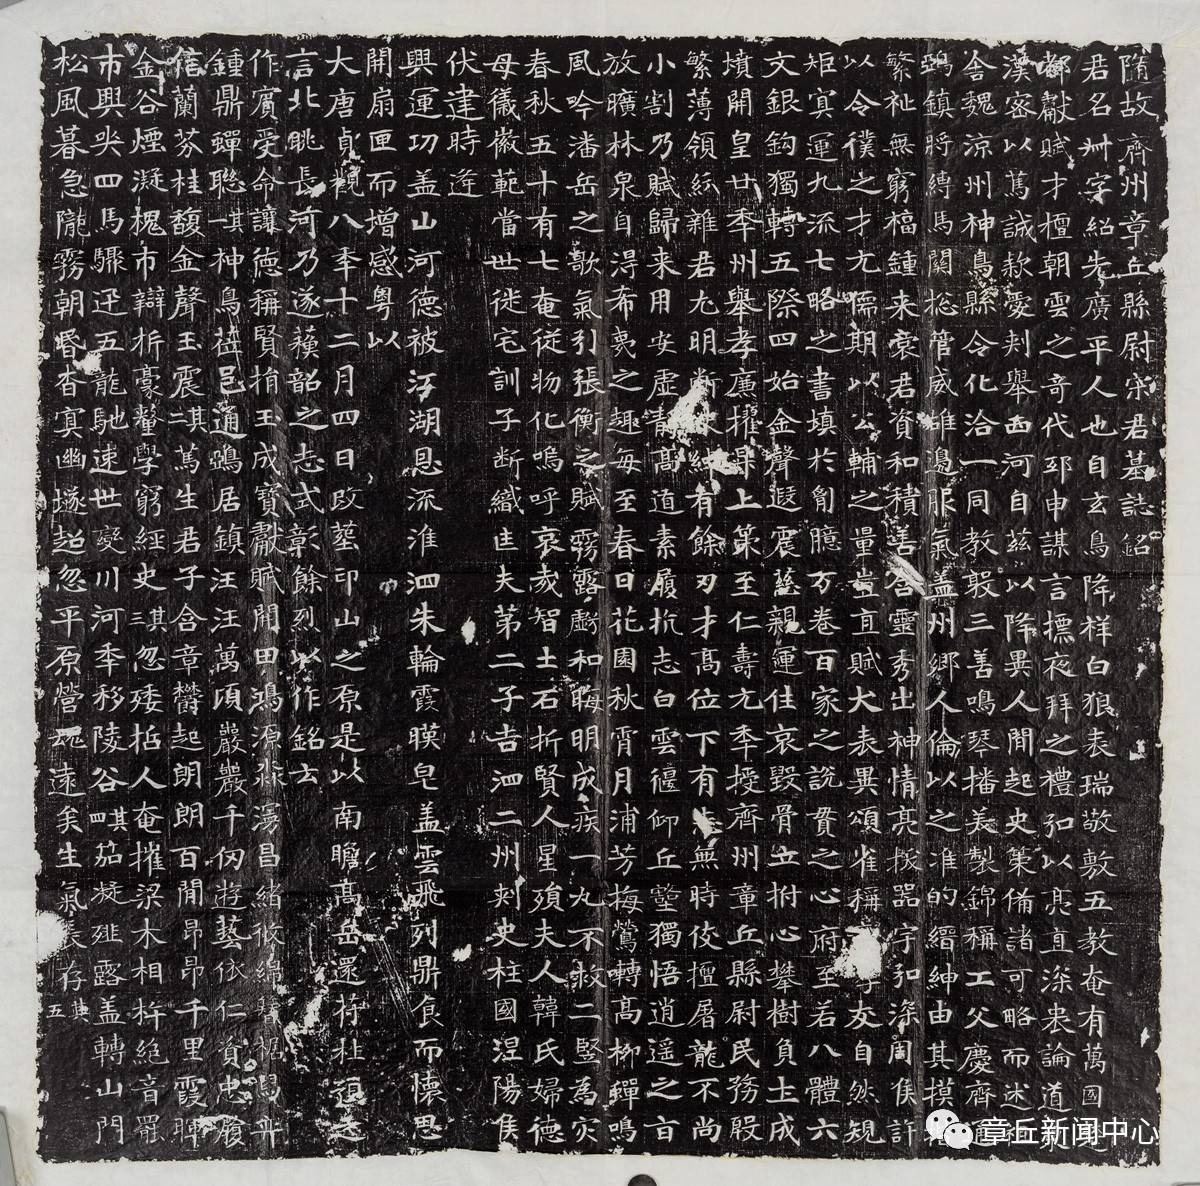 隋故齊州章丘縣尉宋君墓誌銘
君名卅字紹先廣平人也自玄鳥降祥白狼表瑞敬敷五教奄有萬國
獻賦才檀朝雲之奇代邳申謀言摽夜拜之禮弘以亮直深衷論道
漢密以篤誠款愛刾舉西河自茲以降異人間起史筞俻諸可略而述
舍魏涼州神鳥縣令化洽一同教毅三善鳴琴播美製錦稱工父慶齊
鎮將縛馬關揔管威雄邊服氣蓋州鄉人倫以之准的縉紳由其摸
繁祉無窮福鍾来裔君資和積善含靈秀出神情亮拔器宇弘深周侯許
以令僕之才尤儒期以公輔之量豈直賦大表異頌雀稱子友自然規
矩寘運九流七略之書填於匈臆万卷百家之說貫之心府至若八體六
文銀鈎獨轉五際四始金聲遐震慈親運往哀毀骨立拊心攀樹負土成
墳開皇廿季州舉孝廉擢第上第至仁壽元季授齊州章丘縣尉民務殷
繁薄領紛雜君尤明斷有餘刃才高位下有志無時伎擅屠龍不尚
小割乃賦歸来用安虛清高道素履抗志白雲偃仰丘壑獨悟逍遥之旨
放曠林泉自淂希夷之趣每至春日花園秋霄月浦芳梅鶯囀高柳蟬鳴
風吟潘岳之歌氣引張衡之賦霧露虧和晦明成疾一九不救二竪為灾
春秋五十有七奄從物化嗚呼哀哉智士石折賢人星殞夫人韓氏婦德
母儀徽範當世徙宅訓子断織匡夫苐二子吉泗二州刾史柱國湼陽侯
伏逮時逄
興運功盖山河德被江湖恩流淮泗朱輪霞暎皂盖雲飛列鼎食而懷思
開扇匣而增感粤以
大唐貞觀八季十二月四日改塟邙山之原是以南瞻高岳還符杜預之
言北眺長河乃遂蘓韶之志式彰餘烈以作銘云
作賓受命讓德稱賢捎玉成寶獻賦開田鴻源淼漫昌緒攸綿
鍾鼎蟬聯其一神鳥莅邑通鵶居鎮汪汪萬頃巖巖千仞遊藝依仁資忠履
信蘭芬桂馥金聲玉震其二篤生君子含章欝起朗朗百間昂昂千里霞暉
金谷煙凝槐市辯析豪釐學窮經史其三忽矮括人奄摧梁木相杵絶音罷
市興哭四馬驟迊五龍馳速世變川河季移陵谷其四茄凝薤露盖轉山門
松風暮急隴霧朝昬杳寘幽墜超忽平原營魂遠矣生氣長存其五
章丘新闻中心